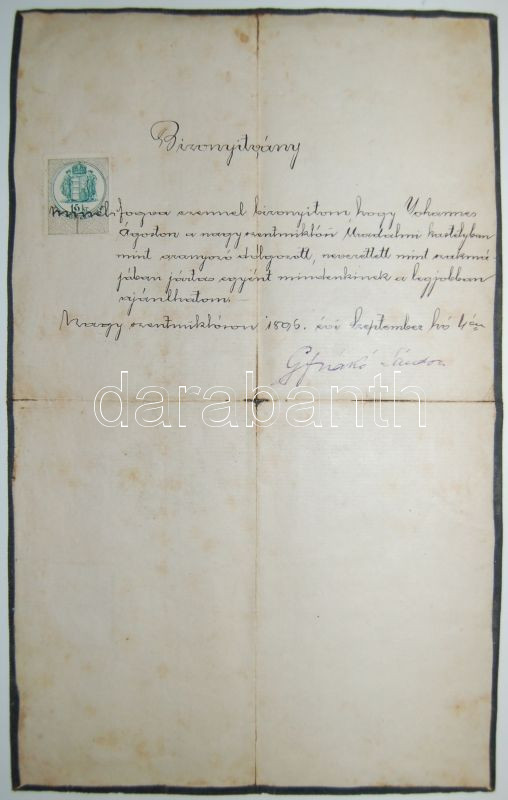 Bizonyitvány
15 kr.
minélfogva ezennel bizonyitom hogy Yohannes
Ágoston a nagy szentmiklósi Uradalmi kastélyban
mint aranyozó dolgozott, nevezettett mint szakmá-
jában jártas egyént mindenkinek a legjobban
ajánlhatom.
Nagy szentmiklóson 1896. évi Szeptember hó 4én
Gf Nákó Sándor
darabanth